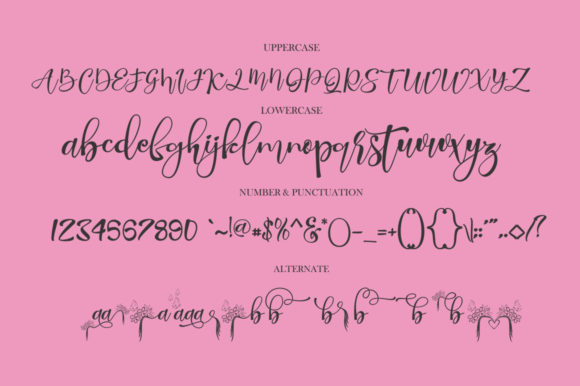 UPPERCASE
ABCDEFGHIJKLMNOPQRSTUVWXYZ
LOWERCASE
abcdefghijklmnopqrstuvwxyz
NUMBER & PUNCTUATION
1234567890 `~!@#$%^&*()-_=+{}[]\|:;'",.<>/?
ALTERNATE